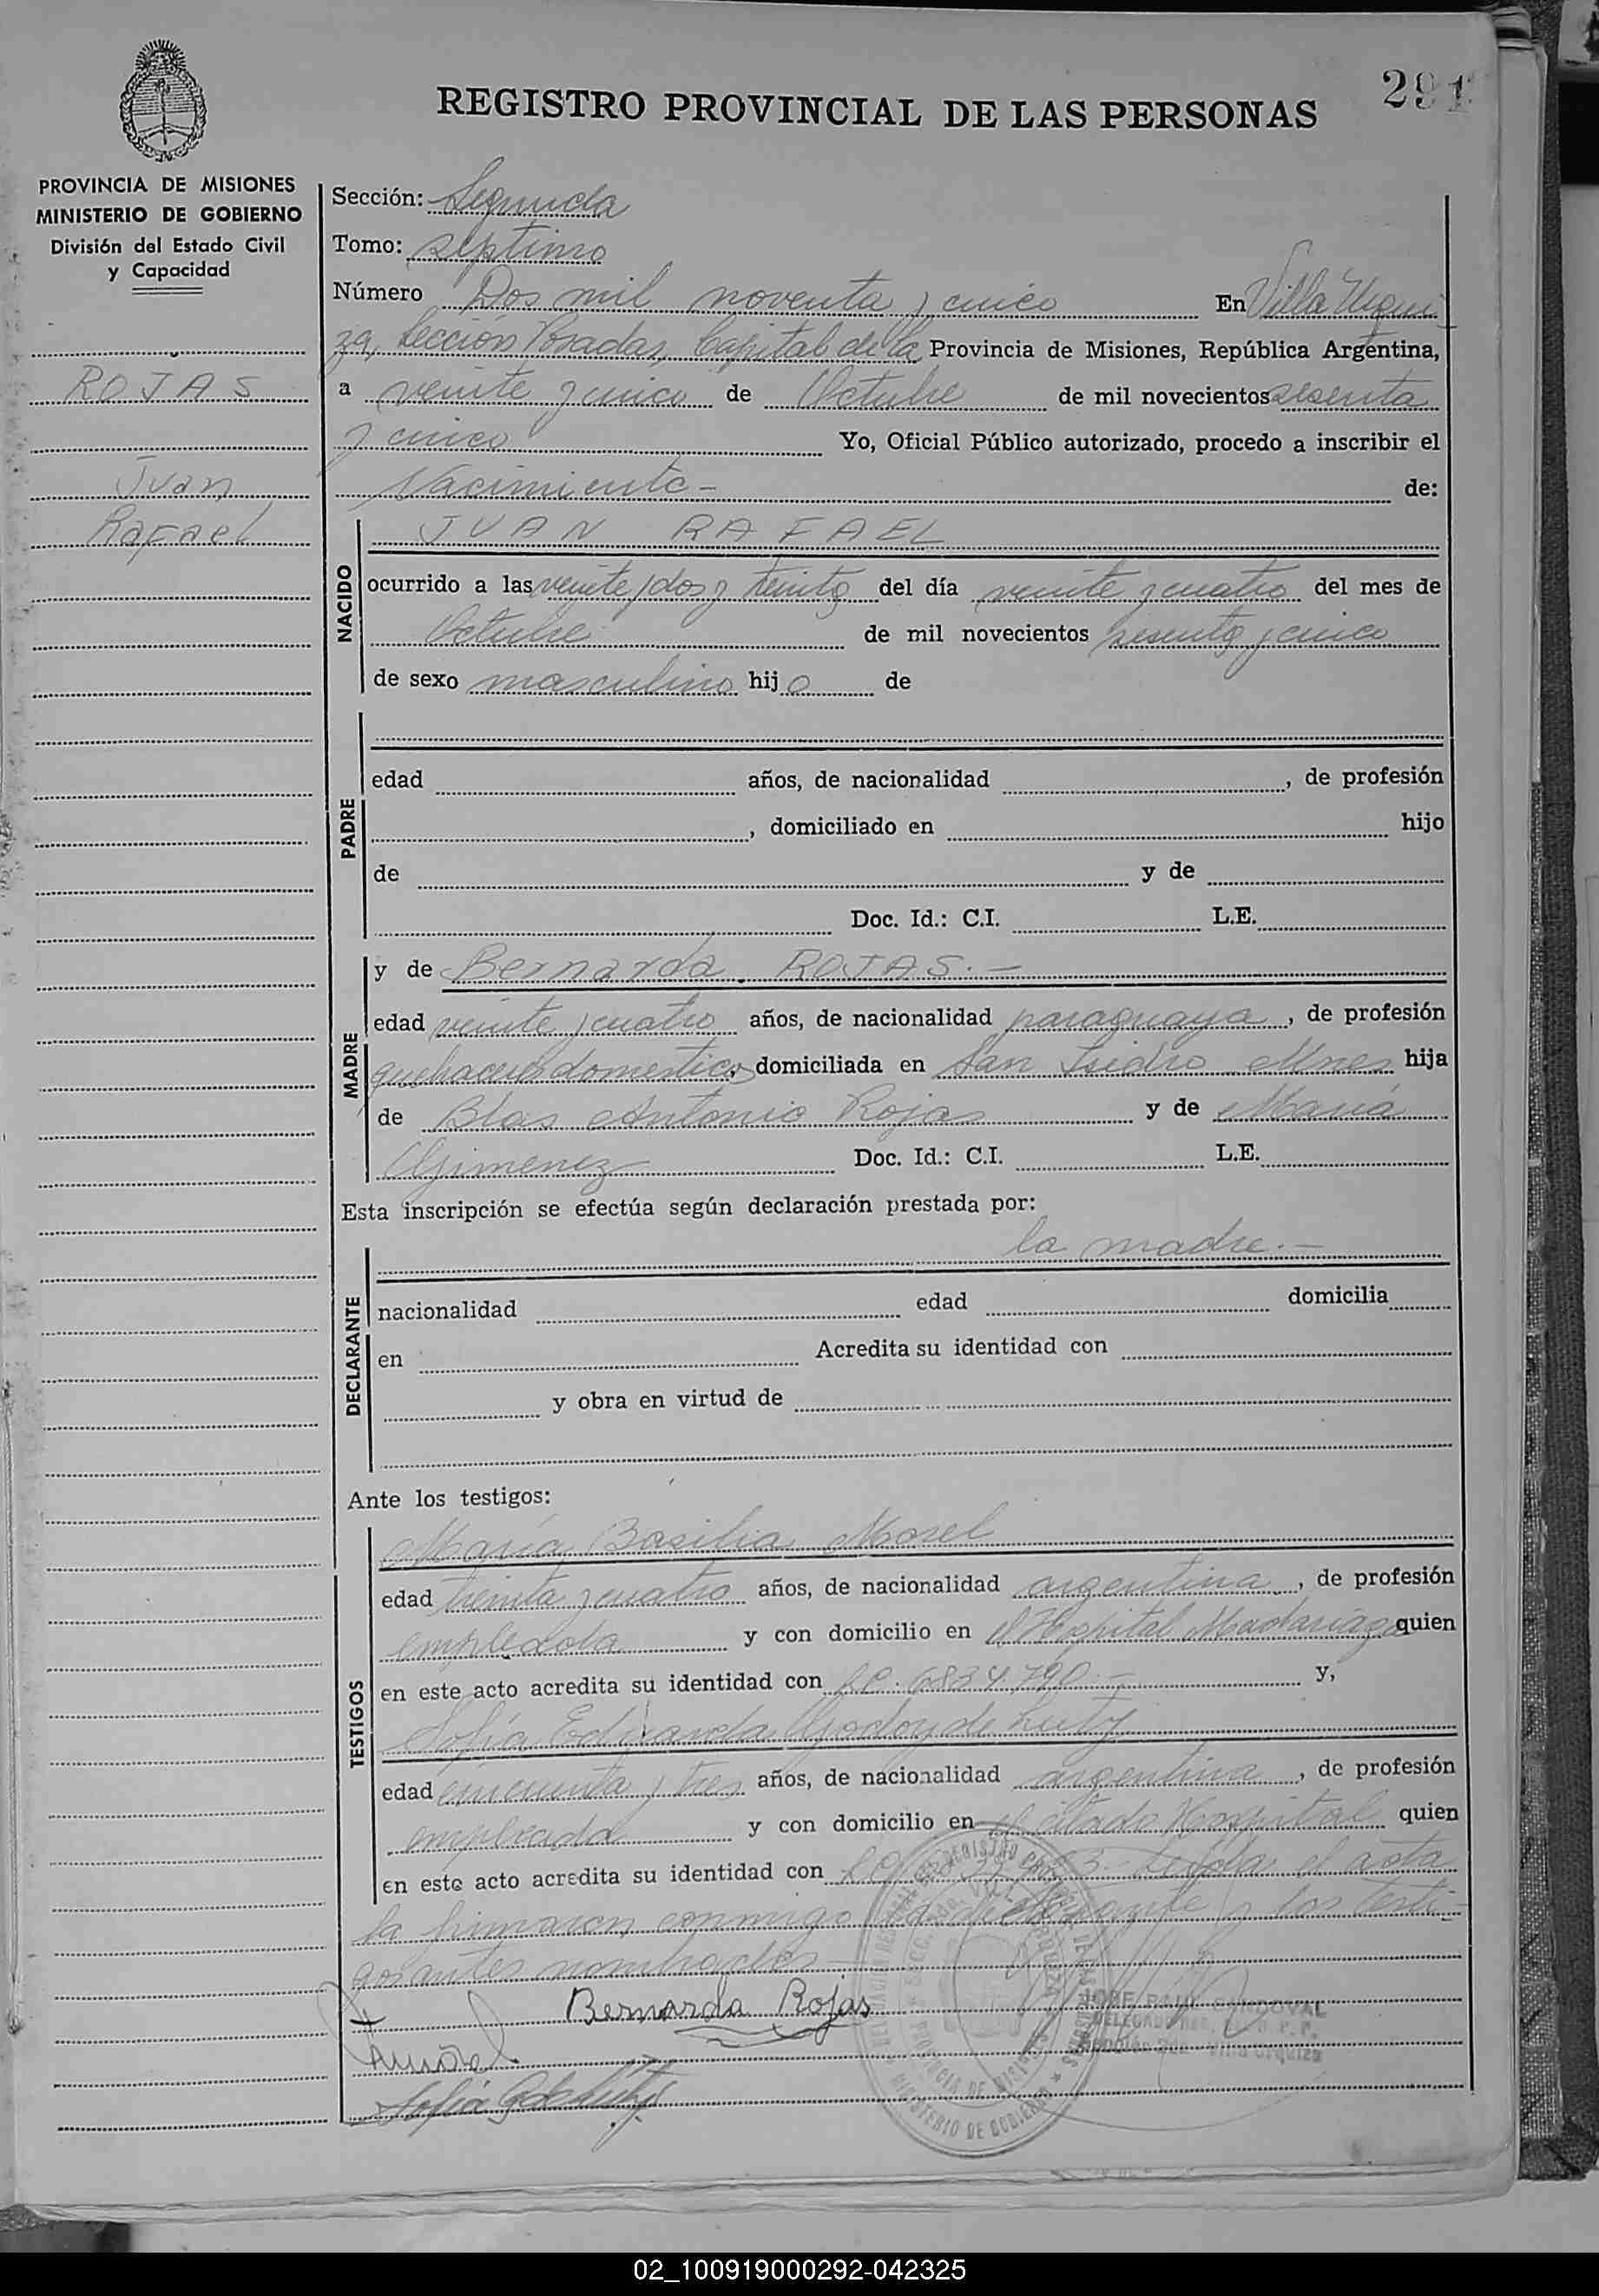 291
REGISTRO PROVINCIAL DE LAS PERSONAS
PROVINCIA DE MISIONES
MINISTERIO DE GOBIERNO
División del Estado Civil
y Capacidad
ROJAS
Juan
Rafael
Sección: Segunda
Tomo: septimo
Número Dos mil noventa y cinco En Villa Urqui-
za, Sección Posadas, Capital de la Provincia de Misiones, República Argentina,
a veinte y cinco de Octubre de mil novecientos sesenta
y cinco Yo, Oficial Público autorizado, procedo a inscribir el
Nacimiento - de:
NACIDO
JUAN RAFAEL
ocurrido a las veinte y dos y treinta del día veinte y cuatro del mes de
Octubre de mil novecientos sesenta y cinco
de sexo masculino hijo de
PADRE
edad años, de nacionalidad , de profesión
, domiciliado en hijo
de y de
Doc. Id.: C.I. L.E.
MADRE
y de Bernarda ROJAS.-
edad veinte y cuatro años, de nacionalidad paraguaya, de profesión
quehaceres domesticos domiciliada en San Isidro Mnes hija
de Blas Antonio Rojas y de María
Gimenez Doc. Id.: C.I. L.E.
Esta inscripción se efectúa según declaración prestada por:
la madre.-
DECLARANTE
nacionalidad edad domicilia
en Acredita su identidad con
y obra en virtud de
Ante los testigos:
TESTIGOS
María Basilia Morel
edad treinta y cuatro años, de nacionalidad argentina, de profesión
empleada y con domicilio en el Hospital Madariaga quien
en este acto acredita su identidad con 6834.790.- y,
Sofía Godoy de
edad cincuenta y tres años, de nacionalidad argentina, de profesión
empleada y con domicilio en el citado Hospital quien
en este acto acredita su identidad con Leída el acta
la firmaron conmigo la declarante y los testi-
gos antes nombrados
Bernarda Rojas
JOSE RAUL SANDOVAL
Sofía
MINISTERIO DE GOBIERNO
PROVINCIA DE MISIONES
02_100919000292-042325